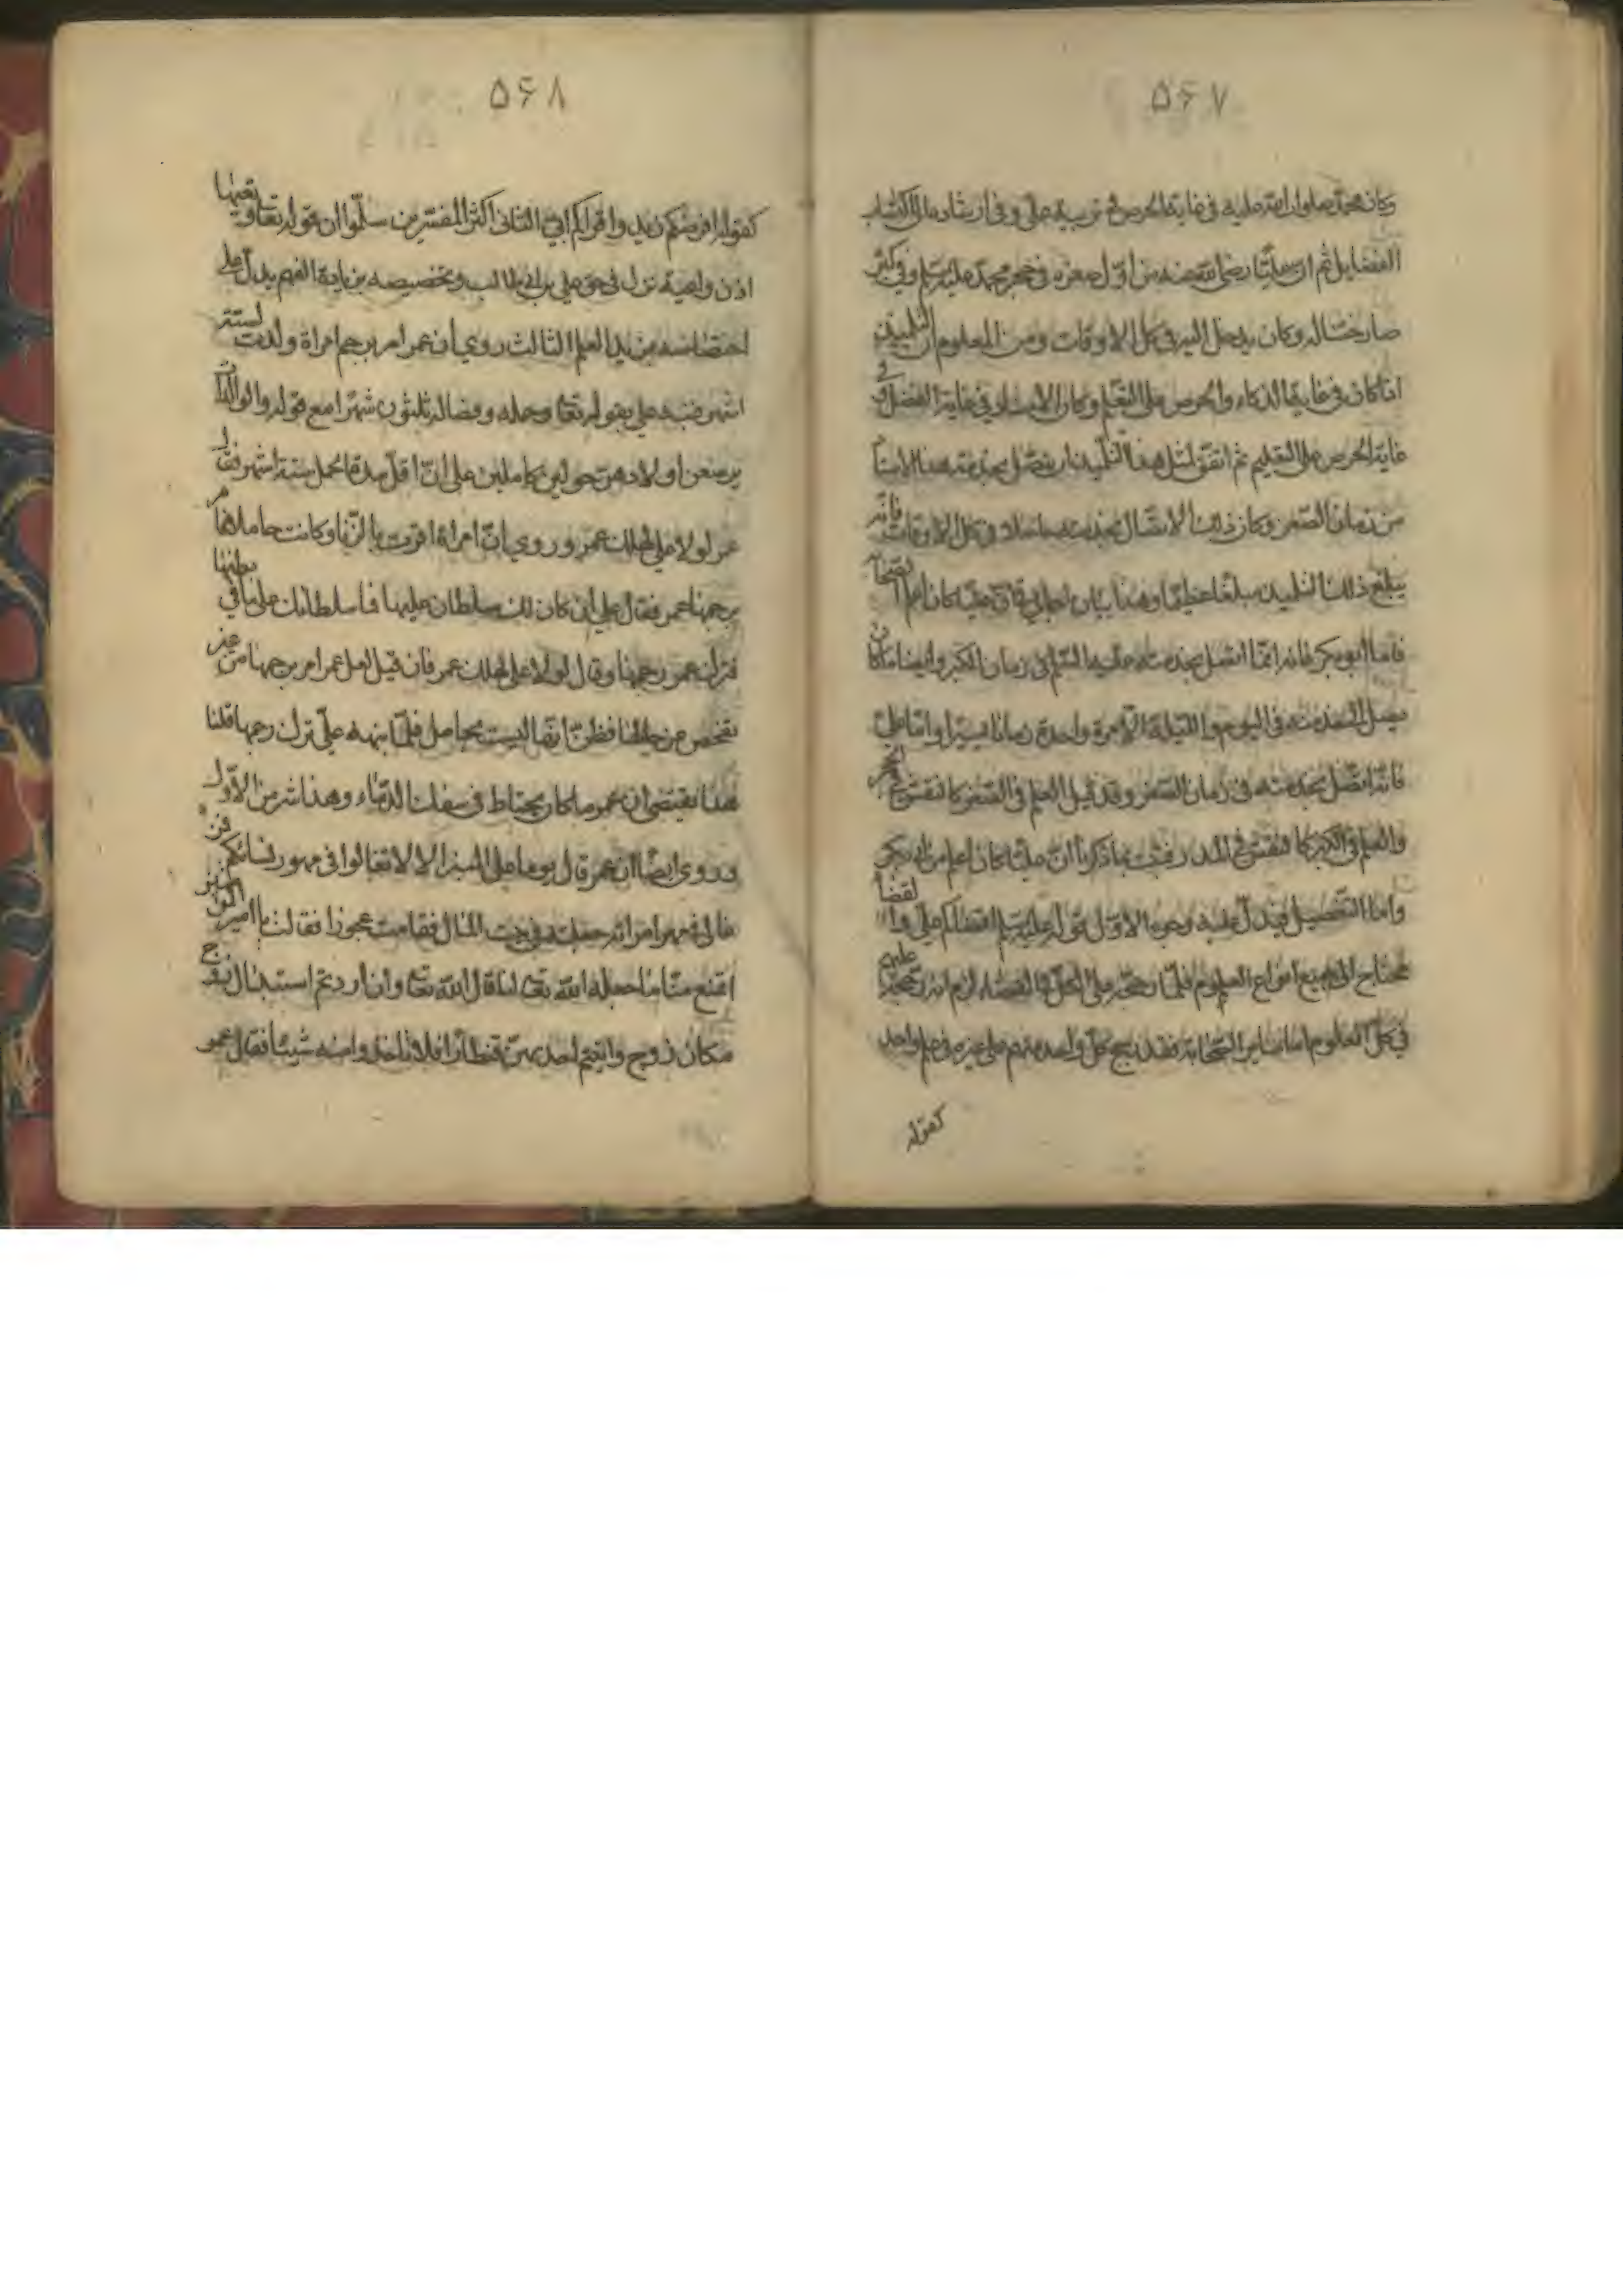 ۵۶۷
وكان محمد صلوات الله عليه في غاية الحرص في تربية علي وفي ارشاده الى اكتساب
الفضايل ثم ان عليا رضي الله عنه من اول صغره في حجر محمد عليه السلم وفي كبره
صار ختنا له وكان يدخل اليه في كل الاوقات ومن المعلوم ان التلميذ
اذا كان في غاية الذكاء والحرص على التعلم وكان الاستاد في غاية الفضل وفي
غاية الحرص على التعليم ثم اتفق لمثل هذا التلميذ ان يتصل بخدمة هذا الاستاد
من زمان الصغر وكان ذلك الاتصال بخدمته حاصلا في كل الاوقات فانه
يبلغ ذلك التلميذ مبلغا عظيما وهذا بيان اجمالي في ان عليا كان اعلم الصحابة
فاما ابو بكر فانه انما اتصل بخدمته عليه السلم في زمان الكبر وايضا ما كان
يصل الى خدمته في اليوم والليلة الا مرة واحدة زمانا يسيرا واما علي
فانه اتصل بخدمته في زمان الصغر وقد قيل العلم في الصغر كالنقش في الحجر
والعلم في الكبر كالنقش في المدر فثبت بما ذكرنا ان عليا كان اعلم من ابي بكر
واما التفصيل فيدل عليه وجوه الاول قوله عليه السلم اقضاكم علي والقضا
محتاج الى جميع انواع العلوم فلما رجحه على الكل في القضاء لزم انه رجحه عليهم
في كل العلوم اما ساير الصحابة فقد رجح كل واحد منهم على غيره في علم واحد
كقوله
۵۶۸
كقوله افرضكم زيد واقراكم ابي الثاني اكثر المفسرين سلموا ان قوله تعا وتعيها
اذن واعية نزل في حق علي بن ابي طالب وتخصيصه بزيادة الفهم يدل على
اختصاصه بمزيد العلم الثالث روي ان عمر امر برجم امراة ولدت لستة
اشهر فنبهه علي بقوله تعا وحمله وفصاله ثلثون شهرا مع قوله والوالدات
يرضعن اولادهن حولين كاملين على ان اقل مدة الحمل ستة اشهر فقال
عمر لولا علي لهلك عمر وروي ان امراة اقرت بالزنا وكانت حاملا فامر
برجمها عمر فقال علي ان كان لك سلطان عليها فما سلطانك على ما في بطنها
فترك عمر رجمها وقال لولا علي لهلك عمر فان قيل لعل عمر امر برجمها من غير
تفحص عن حالها فظن انها ليست بحامل فلما نبهه علي ترك رجمها قلنا
هذا يقتضي ان عمر ما كان يحتاط في سفك الدماء وهذا شر من الاول
وروي ايضا ان عمر قال يوما على المنبر الا لا تغالوا في مهور نسائكم فمن
غالى في مهر امراته جعلته في بيت المال فقامت عجوز فقالت يا امير المؤمنين
اتمنع منا ما جعله الله تعا لنا قال الله تعا وان اردتم استبدال زوج
مكان زوج واتيتم احديهن قنطارا فلا تاخذوا منه شيئا فقال عمر